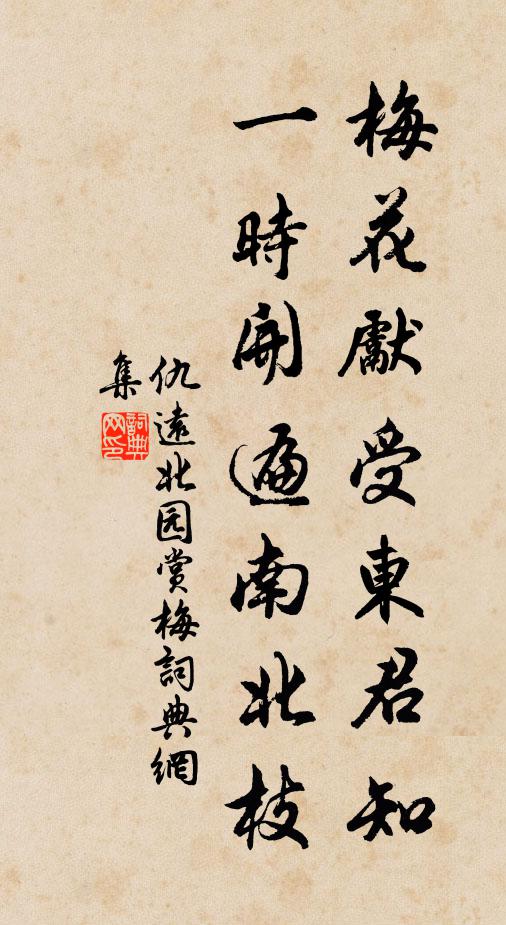 梅花獻受東君知
一時開遍南北枝
仇遠北园賞梅詞典網
集
詞典
网印